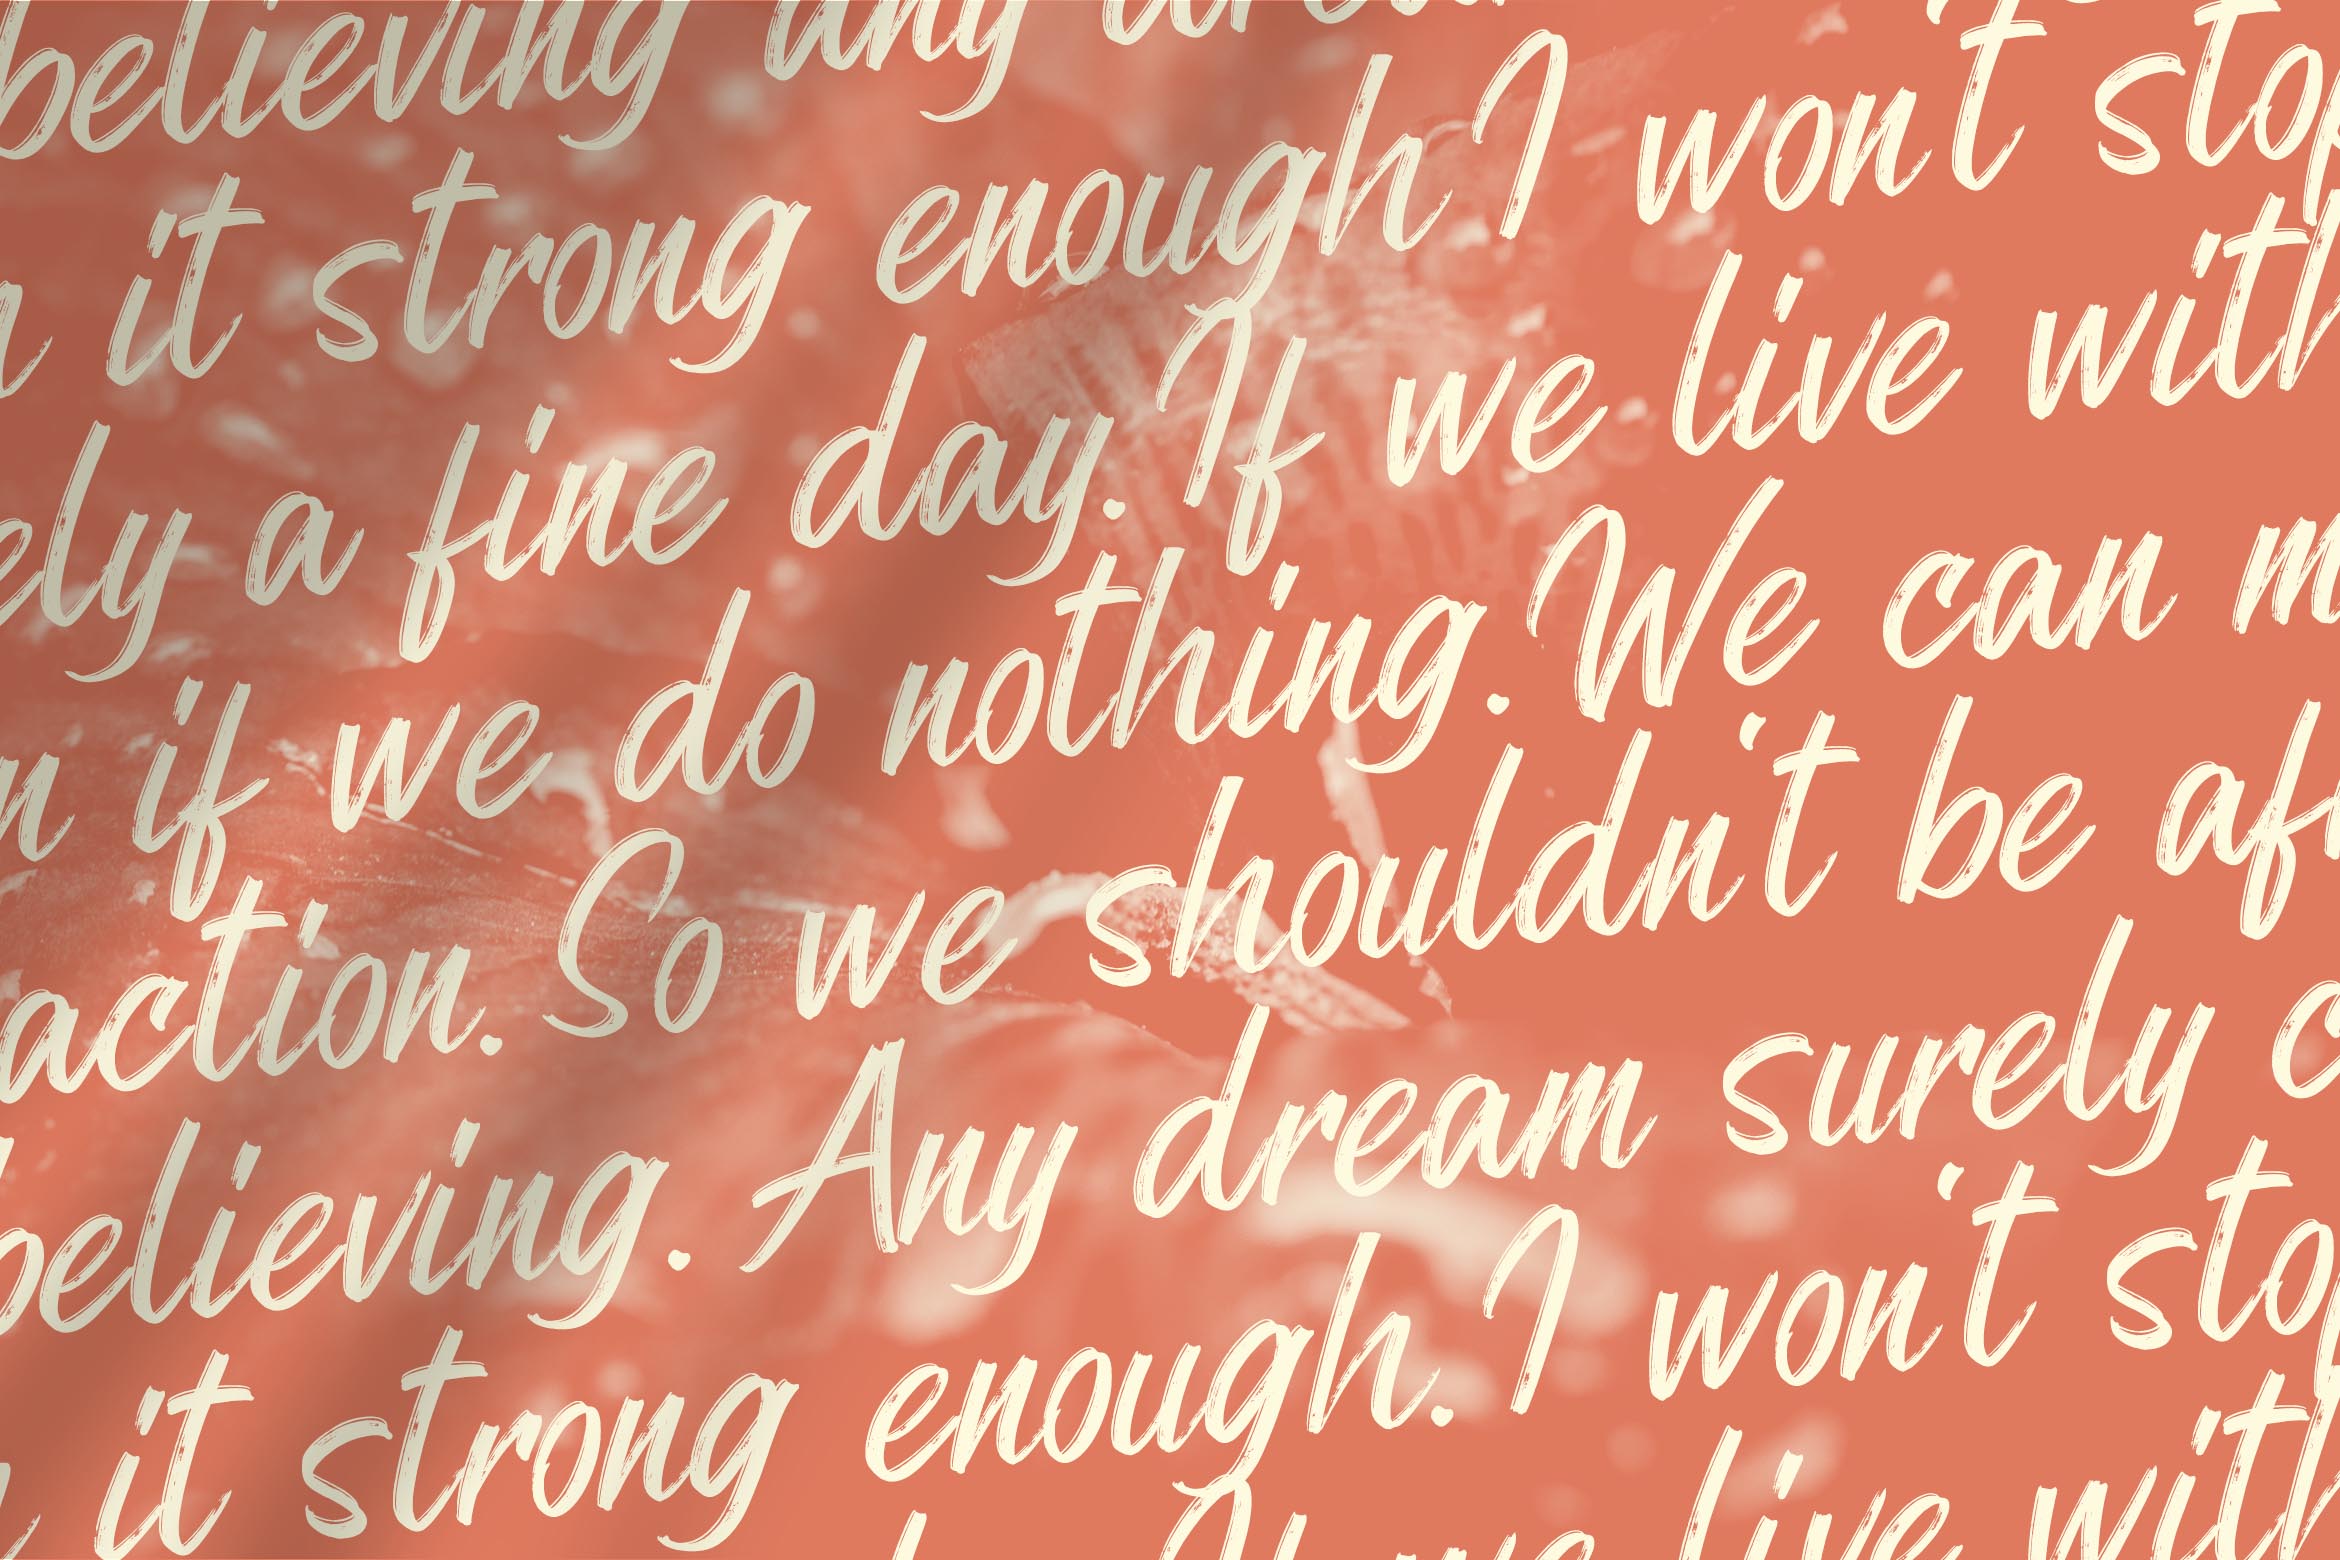 believing any
it strong enough I won't stop
a fine day. If we live with
if we do nothing. We can
action. So we shouldn't be
believing. Any dream surely
it strong enough. I won't stop
live with